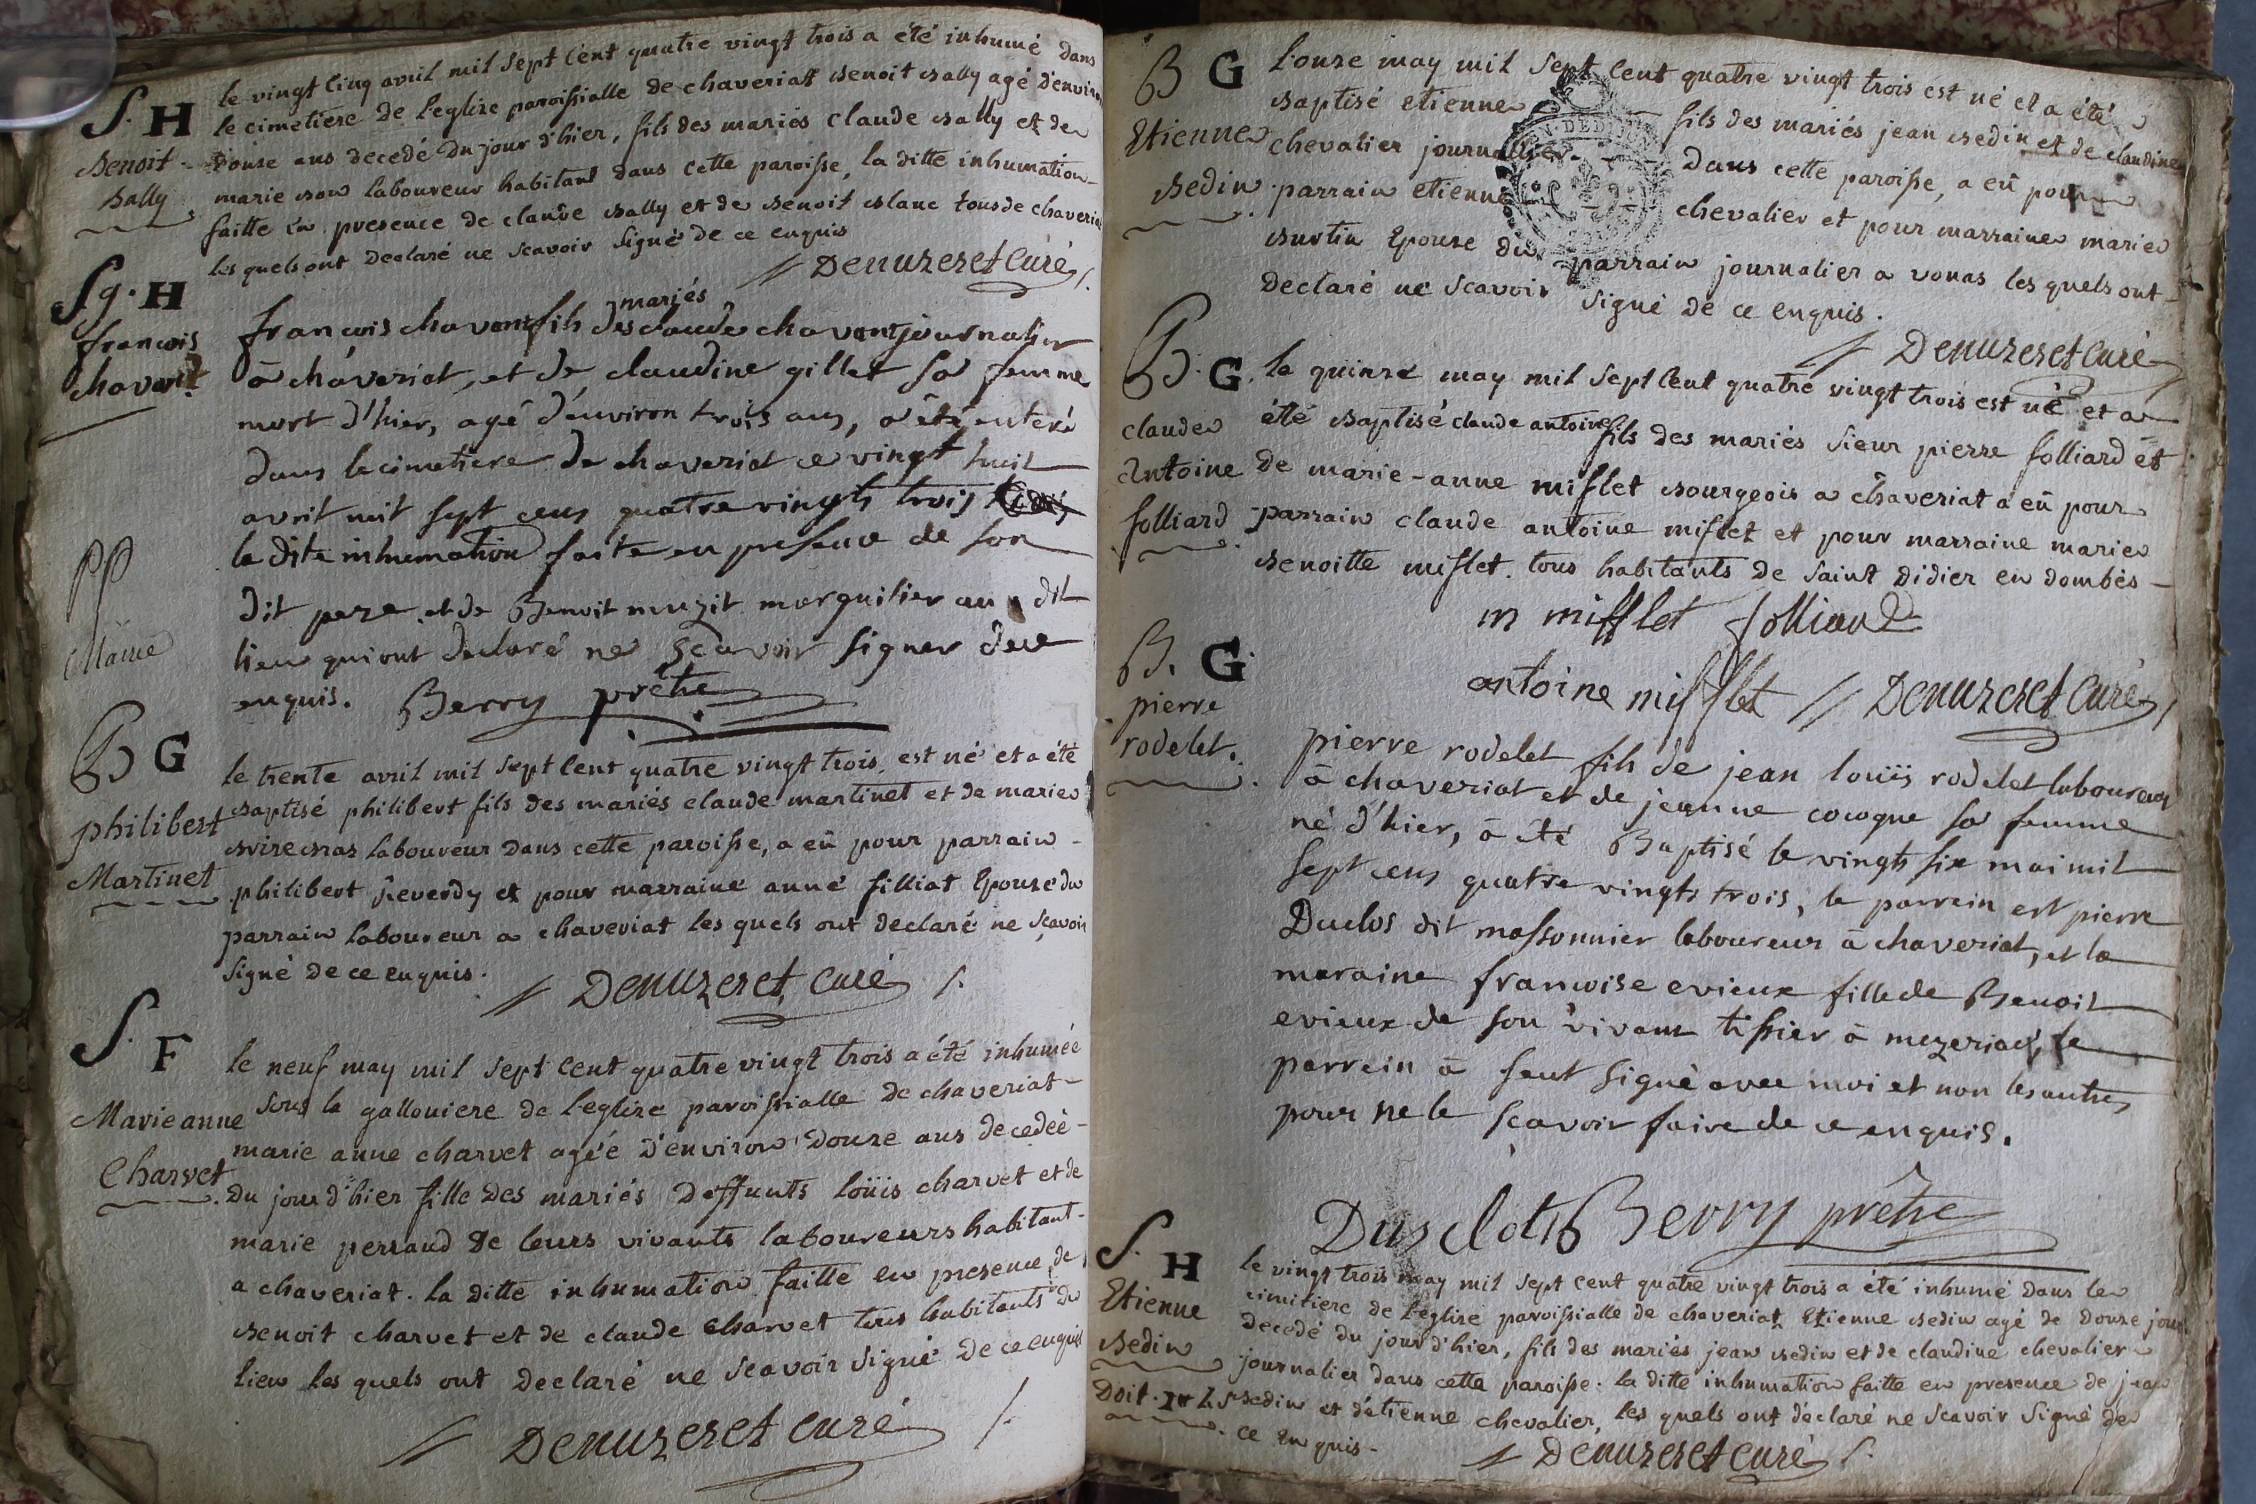 S. H
Benoit
Bally
le vingt cinq avril mil sept cent quatre vingt trois a été inhumé dans
le cimetiere de l'eglize paroissialle de chaveriat Benoit Bally agé d'environ
douse ans decedé du jour d'hier, fils des mariés claude Bally et de
marie laboureur habitant dans cette paroisse, la ditte inhumation
faitte en presence de claude Bally et de Benoit Blanc tous de chaveriat
les quels ont declaré ne scavoir signé de ce enquis
Denuzeret curé
Sg. H
francois
chavant
francois chavant fils des mariés claude chavant journalier
à chaveriat, et de claudine gillet sa femme
mort d'hier, agé d'environ trois ans, a été enteré
dans le cimetiere de chaveriat ce vingt huit
avril mil sept cens quatre vingts trois
la dite inhumation faite en presence de son
dit pere et de Benoit muzit marguilier au dit
lieu qui ont declaré ne scavoir signer de ce
enquis. Berry prêtre
B G
philibert
Martinet
le trente avril mil sept cent quatre vingt trois, est né et a été
Baptisé philibert fils des mariés claude martinet et de marie
laboureur dans cette paroisse, a eû pour parrain
philibert feverdy et pour marraine anne filliat Epouse du
parrain laboureur a chaveriat les quels ont declaré ne sçavoir
signé de ce enquis.
Denuzeret, curé
S. F
Marie anne
Charvet
le neuf may mil sept cent quatre vingt trois a été inhumée
sous la gallouiere de l'eglize paroissialle de chaveriat
marie anne charvet agée d'environ douse ans decedée
du jour d'hier fille des mariés deffunts loüis charvet et de
marie perraud de leurs vivants laboureurs habitant
a chaveriat. la ditte inhumation faitte en presence de
Benoit charvet et de claude charvet tous habitants du
lieu les quels ont declaré ne scavoir signé de ce enquis
Denuzeret curé
B G
Etienne
Bedin
L'onse may mil sept cent quatre vingt trois est né et a été
Baptisé etienne fils des mariés jean Bedin et de claudine
chevalier journallier dans cette paroisse, a eû pour
parrain etienne chevalier et pour marraine marie
Burtin Epouse du parrain journalier a vonas les quels ont
declaré ne scavoir signé de ce enquis.
Denuzeret curé
B. G.
claude
Antoine
folliard
le quinze may mil sept cent quatre vingt trois est né et a
été Baptisé claude antoine fils des mariés sieur pierre folliard et
de marie-anne mifflet Bourgeois a chaveriat a eû pour
parrain claude antoine mifflet et pour marraine marie
Benoitte mifflet. tous habitants de saint didier en dombes
m mifflet folliard
antoine mifflet Denuzeret curé
B. G.
pierre
rodelet.
pierre rodelet fils de jean loüis rodelet laboureur
à chaveriat et de jeanne cocogne sa femme
né d'hier, à été Baptisé le vingts six mai mil
sept cens quatre vingts trois, le parrein est pierre
Duclos dit massonnier laboureur à chaveriat, et la
maraine francoise evieux fille de Benoit
evieux de son vivant tissier à mezeriac, le
parrein à seul signé avec moi et non les autres
pour ne le sçavoir faire de ce enquis.
Berry prêtre
S. H
Etienne
Bedin
le vingt trois may mil sept cent quatre vingt trois a été inhumé dans le
cimitiere de l'eglize paroissialle de chaveriat Etienne Bedin agé de douse jours
decedé du jour d'hier, fils des mariés jean Bedin et de claudine chevalier
journalier dans cette paroisse. la ditte inhumation faitte en presence de jean
Bedin et d'etienne chevalier, les quels ont déclaré ne scavoir signé de
ce enquis.
Denuzeret curé